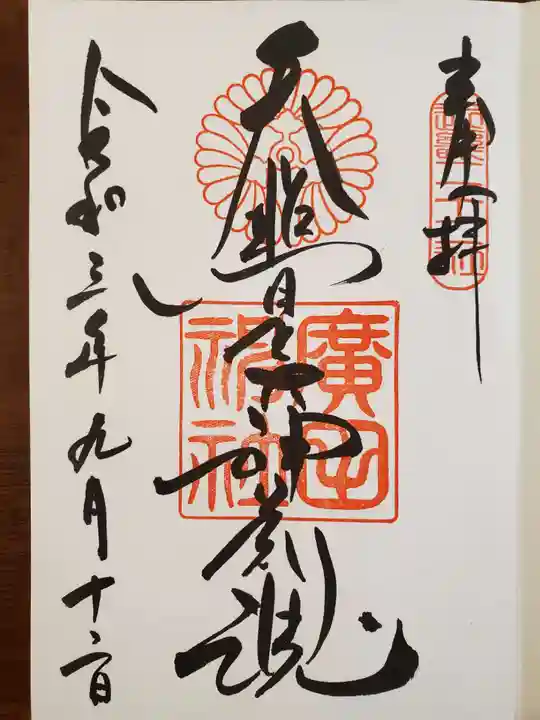 奉拝
天照皇大神荒魂
廣田
神社
令和三年九月十二日